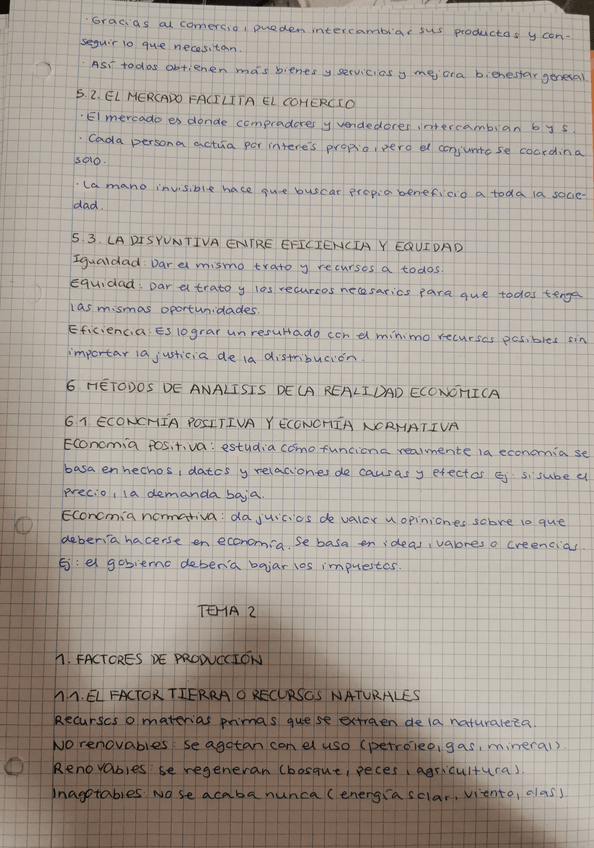 · Gracias al comercio, pueden intercambiar sus productos y con-
seguir lo que necesitan.
· Así todos obtienen más bienes y servicios y mejora bienestar general.
5.2. EL MERCADO FACILITA EL COMERCIO
· El mercado es donde compradores y vendedores intercambian b y s.
· Cada persona actúa por interés propio, pero el conjunto se coordina
solo.
· La mano invisible hace que buscar propio beneficio a toda la socie-
dad.
5.3. LA DISYUNTIVA ENTRE EFICIENCIA Y EQUIDAD
Igualdad: Dar el mismo trato y recursos a todos.
Equidad: Dar el trato y los recursos necesarios para que todos tenga
las mismas oportunidades.
Eficiencia: Es lograr un resultado con el mínimo recursos posibles sin
importar la justicia de la distribución.
6 MÉTODOS DE ANALISIS DE LA REALIDAD ECONÓMICA
6.1. ECONOMÍA POSITIVA Y ECONOMÍA NORMATIVA
Economía positiva: estudia cómo funciona realmente la economía se
basa en hechos, datos y relaciones de causas y efectos Ej: si sube el
precio, la demanda baja.
Economía normativa: da juicios de valor u opiniones sobre lo que
debería hacerse en economía. Se basa en ideas, valores o creencias.
Ej: el gobierno debería bajar los impuestos.
TEMA 2
1. FACTORES DE PRODUCCIÓN
1.1. EL FACTOR TIERRA O RECURSOS NATURALES
Recursos o materias primas que se extraen de la naturaleza.
NO renovables: se agotan con el uso (petróleo, gas, mineral).
Renovables: se regeneran (bosque, peces, agricultura).
Inagotables: No se acaba nunca (energía solar, viento, olas).